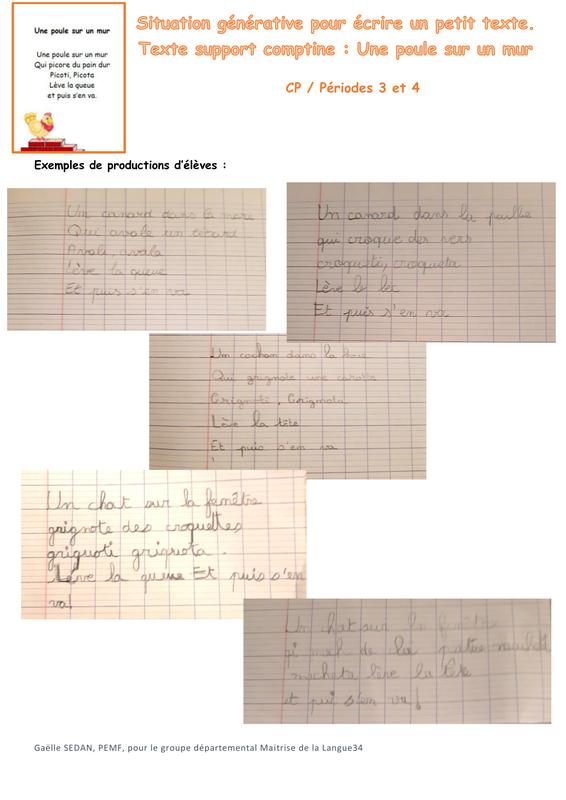 Une poule sur un mur
Une poule sur un mur
Qui picore du pain dur
Picoti, Picota
Lève la queue
et puis s'en va.
Situation générative pour écrire un petit texte.
Texte support comptine : Une poule sur un mur
CP / Périodes 3 et 4
Exemples de productions d'élèves :
Un canard dans la mare
Qui avale un têtard
Avali, avala
Lève la queue
Et puis s'en va
Un canard dans la paille
qui croque des vers
croqueti, croqueta
Lève le bec
Et puis s'en va
Un cochon dans la boue
Qui grignote une carotte
Grignoti, Grignota
Lève la tête
Et puis s'en va
Un chat sur la fenêtre
grignote des croquettes
griguoti griguota.
Léve la queue Et puis s'en
va!
Un chat sur la fenêtre
de la
macheta lève la tête
et pui s'en va!
Gaëlle SEDAN, PEMF, pour le groupe départemental Maitrise de la Langue34